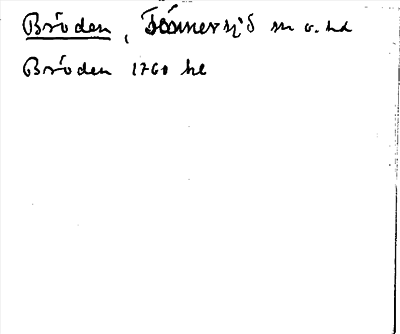 Bröden, Tönnersjö sn o. hd
Bröden 1760 hl